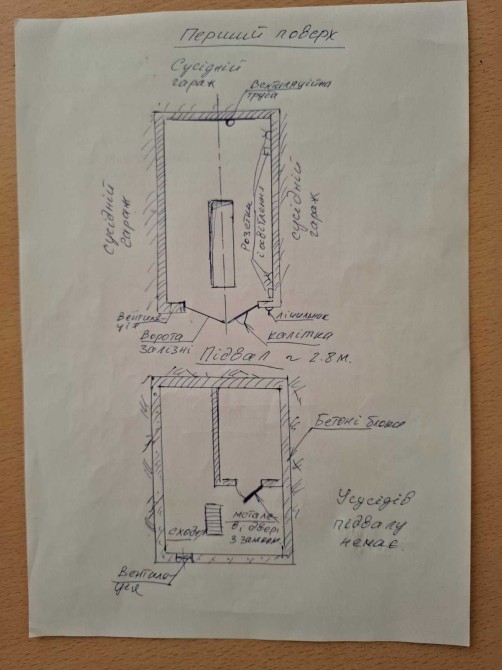 Перший поверх
Сусідній
гараж
Вентиляційна
труба
Сусідній
гараж
Розетки
і освітлення
сусідній
гараж
Вентиля-
ція
Ворота
залізні
лічильник
калітка
Підвал ~ 2.8 м.
Бетоні блоки
сходи
метале-
ві двері
з замком
У сусідів
підвалу
немає.
Вентиля-
ція